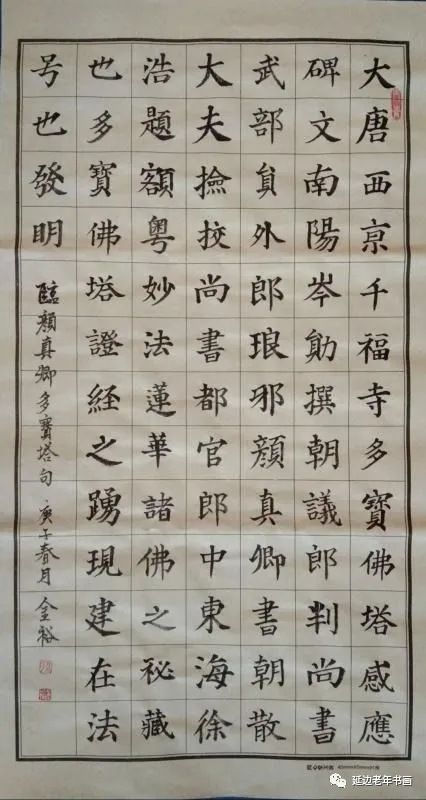 大唐西京千福寺多寶佛塔感應
碑文南陽岑勛撰朝議郎判尚書
武部貟外郎琅邪顏真卿書朝散
大夫撿挍尚書都官郎中東海徐
浩題額粵妙法蓮華諸佛之祕藏
也多寶佛塔證経之踴現建在法
号也發明
臨顏真卿多寶塔句 庚子春月 金裕
延边老年书画